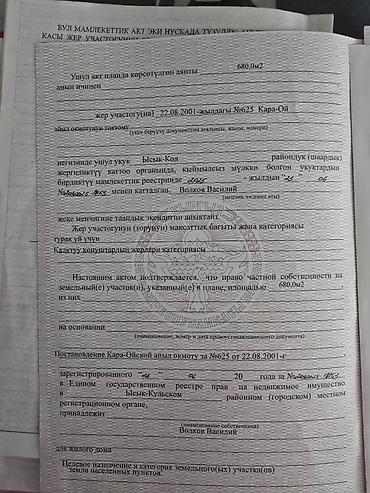 БУЛ МАМЛЕКЕТТИК АКТ ЭКИ НУСКАДА ТҮЗҮЛДҮ:
КАСЫ ЖЕР УЧАСТОГУНУН
Ушул акт планда көрсөтүлгөн аянты 680,0м2
анын ичинен
жер участогу(на) 22.08.2001-жылдагы №625 Кара-Ой
айыл окмотунун токтому
(укук берүүчү документтин аталышы, күнү, номери)
негизинде ушул укук Ысык-Кол райондук (шаардык)
жергиликтүү каттоо органында, кыймылсыз мүлккө болгон укуктардын
бирдиктүү мамлекеттик реестринде - жылдын " " 06
№ менен катталган, Волков Василий
(менчик ээсинин аты)
жеке менчигине таандык экендигин аныктайт.
Жер участогунун (торунун) максаттык багыты жана категориясы
турак үй үчүн
Калктуу конуштардын жерлери категориясы
Настоящим актом подтверждается, что право частной собственности на
земельный(е) участок(и), указанный(е) в плане, площадью 680,0м2
из них
на основании
(наименование, номер и дата правоустанавливающего документа)
Постановление Кара-Ойской айыл окмоту за №625 от 22.08.2001-г
зарегистрированного " " 06 20 года за №
в Едином государственном реестре прав на недвижимое имущество
в Ысык-Кульском районном (городском) местном
регистрационном органе,
принадлежит
(наименование собственника)
Волков Василий
для жилого дома
Целевое назначение и категория земельного(ых) участка(ов)
земли населенных пунктов.